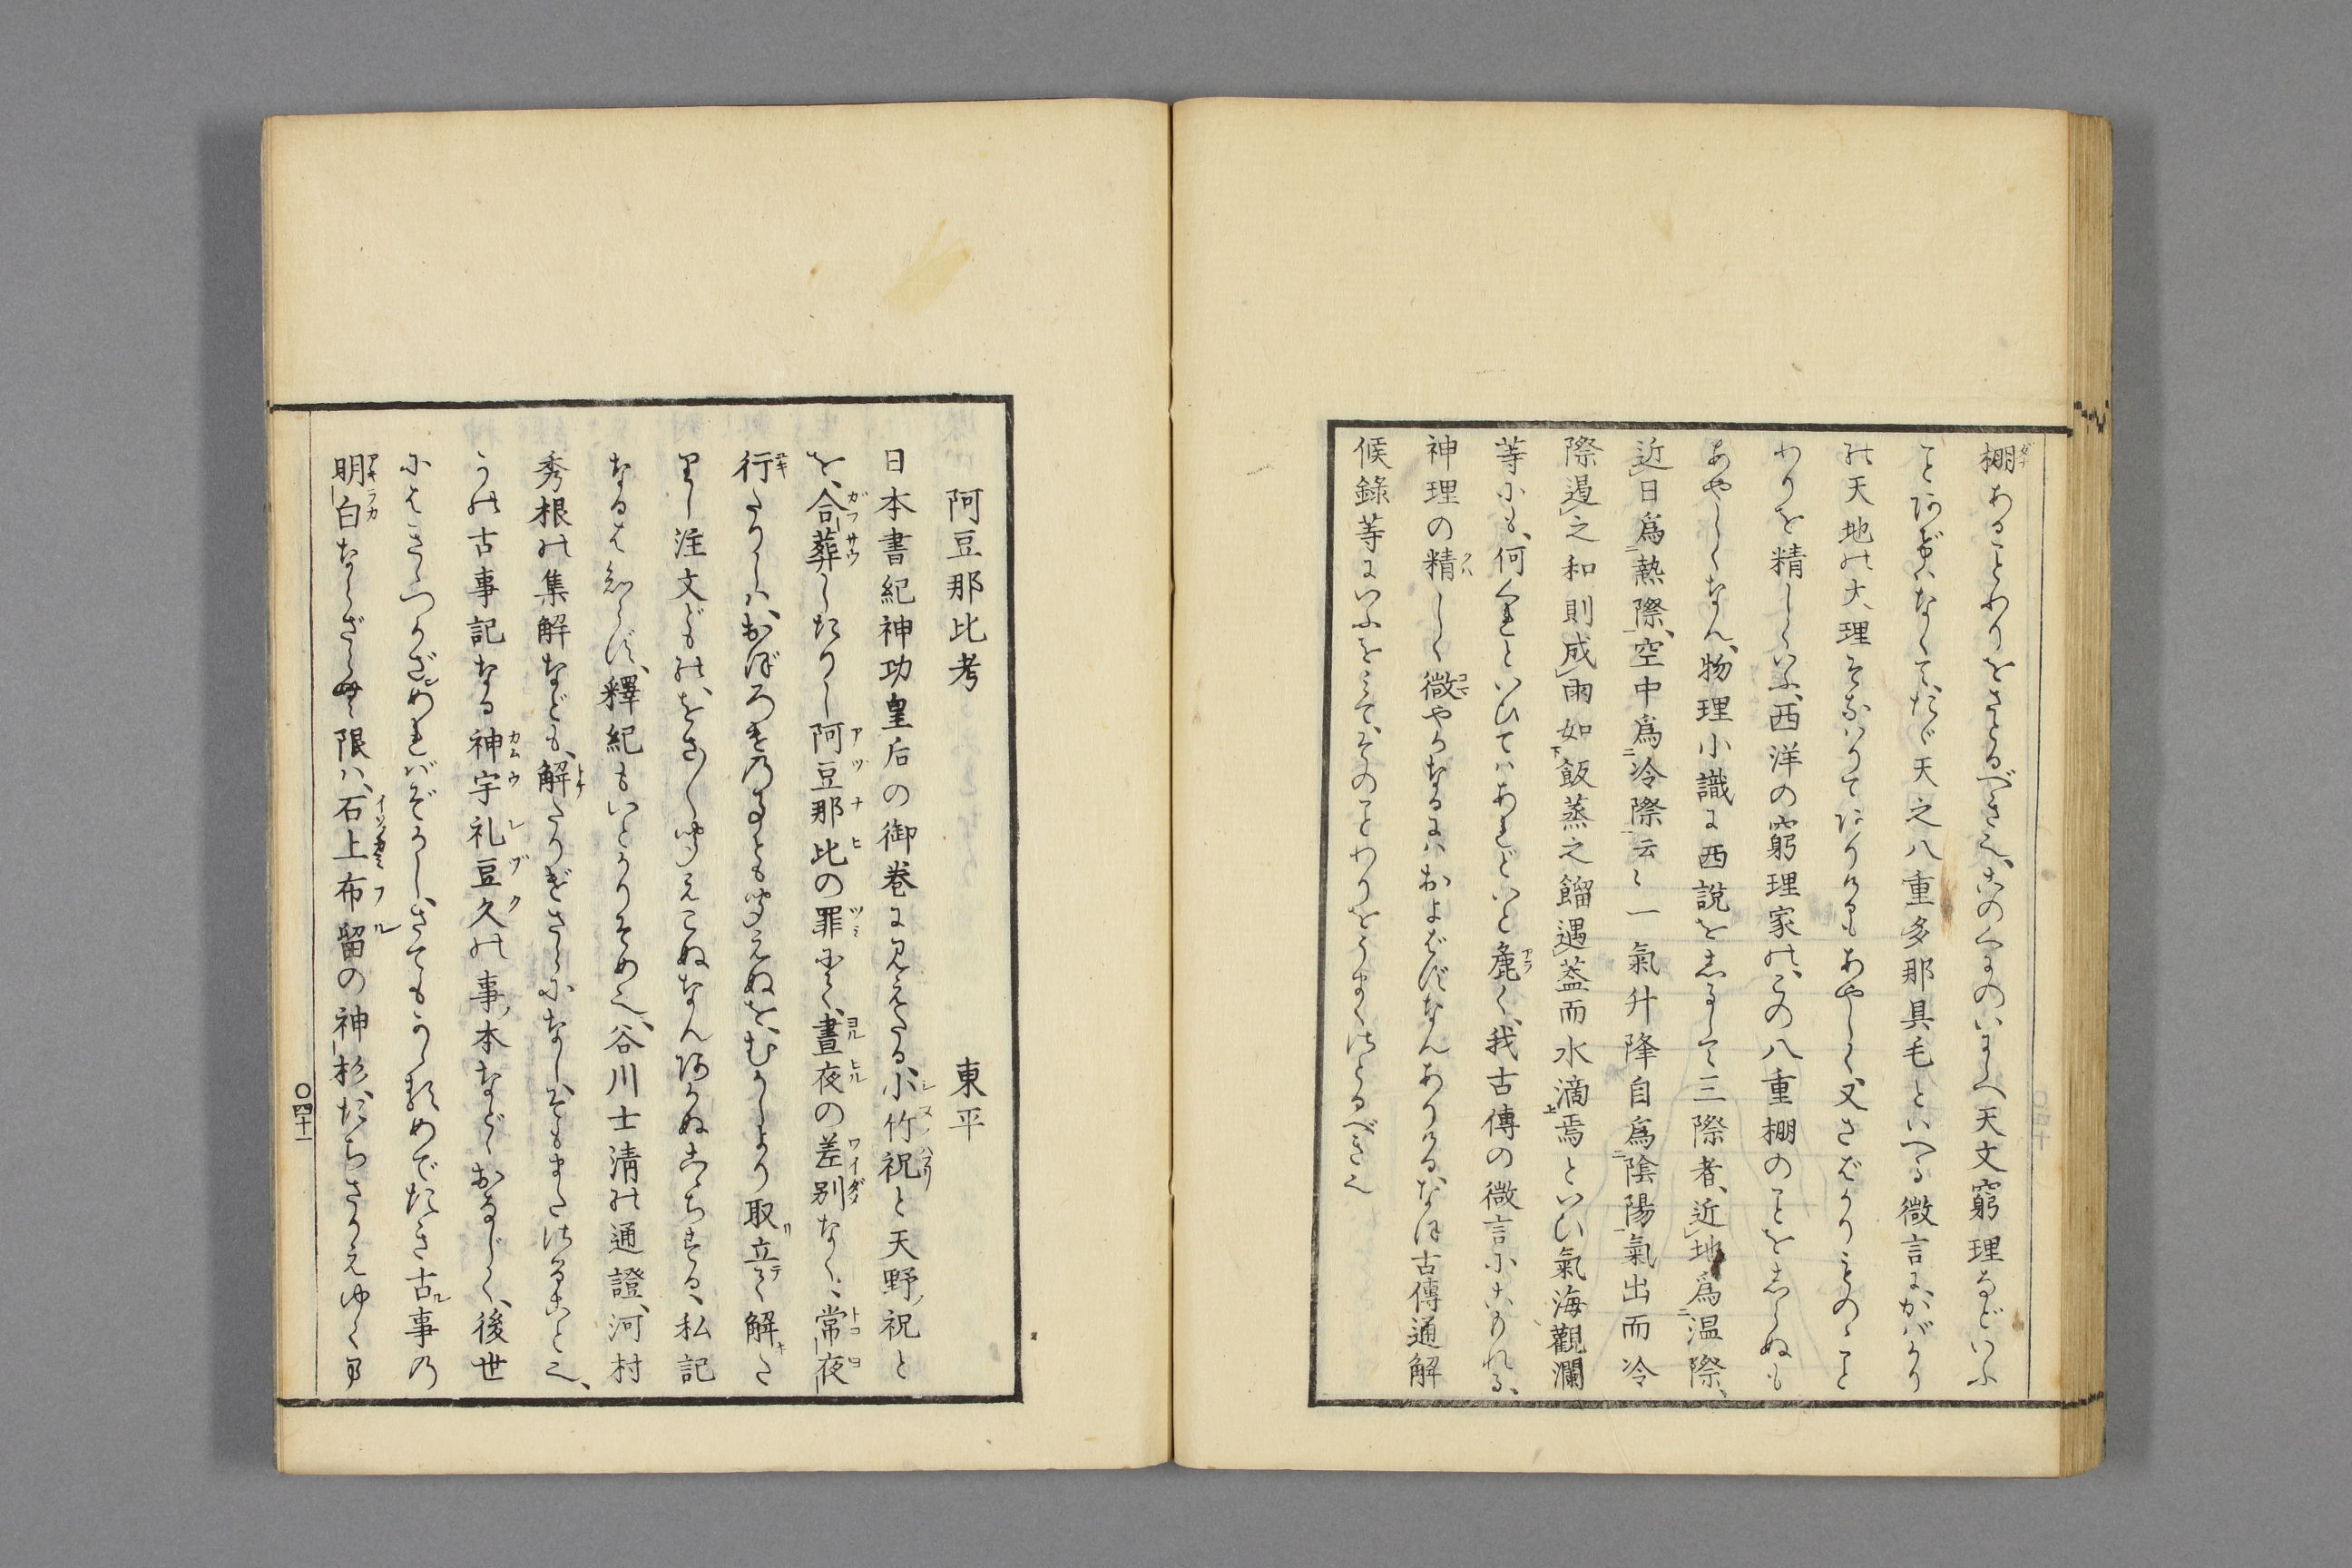 棚あることわりをさとるべき也、このくまのいまへ天文窮理などいふ
ことはなくて、たゞ天之八重多那具毛といへる微言に、かばかり
の天地の大理そなはりてありけるもあやしく、又さばかりことのこと
わりを精しくいふ、西洋の窮理家の、この八重棚のことをしらぬも
あやしくなん、物理小識に西説をしるして三際者、近地爲温際、
近日爲熱際、空中爲冷際云々一氣升降自爲陰陽氣出而冷
際邉之和則成雨如飯蒸之餾遇蓋而水滴焉といひ氣海觀瀾
等にも、何くれといひてはあれどいと麁く、我古傳の微言にこもれる、
神理の精しく微やかなるには、およばずなんありける、なほ古傳通解
候錄等にいふをみて、そのことわりをうまくさとるべき也
阿豆那比考　東平
日本書紀神功皇后の御巻に見えたる、小竹祝と天野祝と
を、合葬したりし阿豆那比の罪にて、晝夜の差別なく、常夜
行たりしは、おぼろけの事とも聞えぬを、むかしより取立て解た
りし注文どもの、をさ〳〵聞えこぬなんあかぬこゝちする、私記
なるは知らず、釋紀もいとかりそめ也、谷川士清の通證、河村
秀根の集解なども、解たりげさらになし、そもまたさること也、
かの古事記なる神宇礼豆久の事、本などゝおなじく、後世
にはきゝつかざめればぞかし、さてもかくめでたき古事の
明白ならざらむ限は、石上布留の神杉、たちさかえゆく
〇四十一